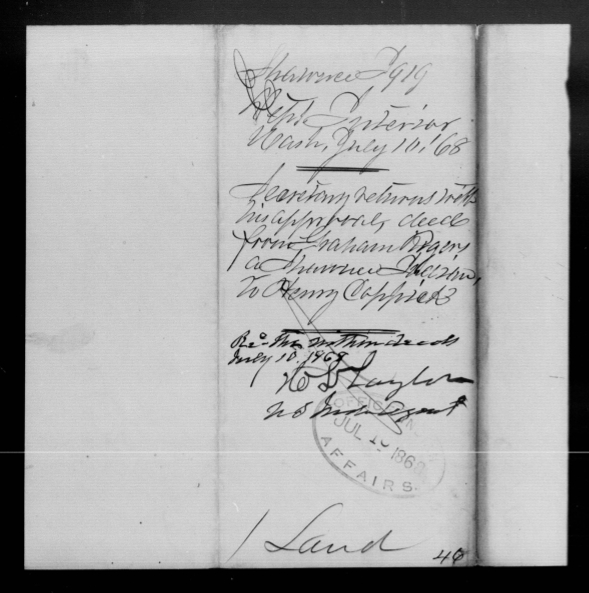 Shawnee I 919
Dept. Interior
Wash, July 10, '68
Secretary returns with
his approval, deed
from Graham Rogers
a Shawnee Indian,
to Henry Coppick
Recd the within deeds
July 10. 1868
H L Taylor
U S Ind Agent
OFFICE INDIAN
JUL 10 1868
AFFAIRS
/ Land
46